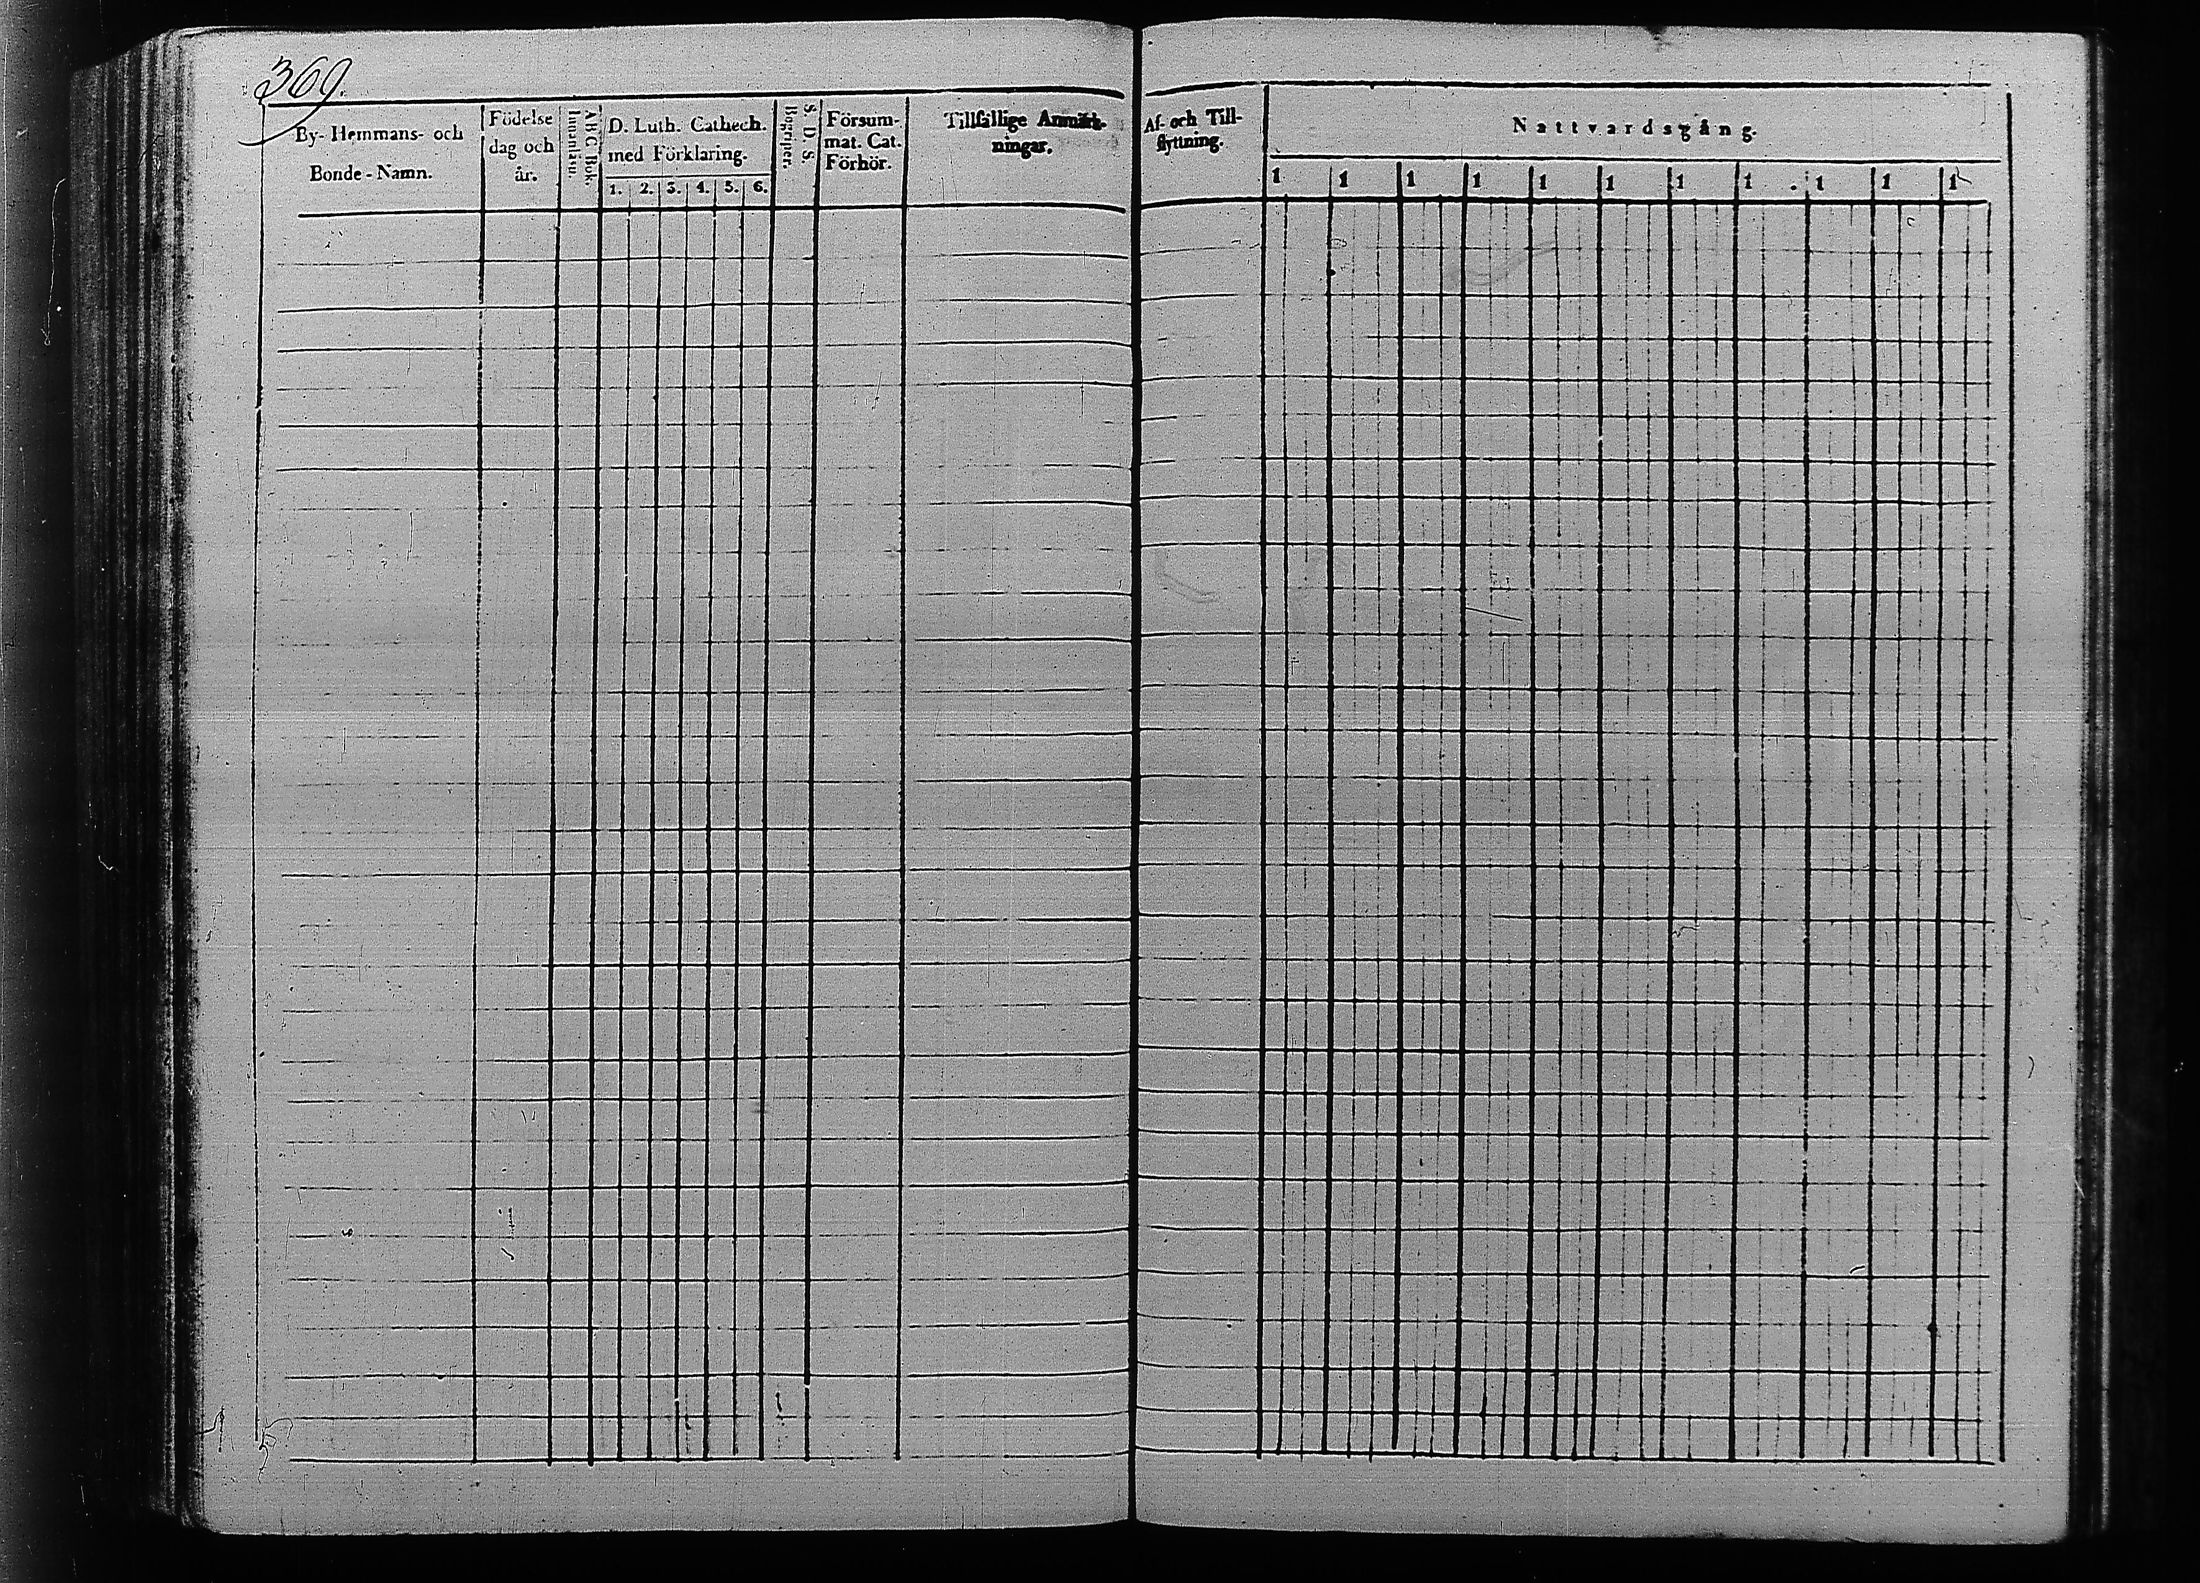 369.
By- Hemmans- och
Bonde-Namn.
Födelse
dag och
år.
Innanläsn.
ABC Bok.
D. Luth. Cathech.
med Förklaring.
1. 2. 3. 4. 5. 6.
Begriper.
S. D. S.
Försum-
mat. Cat.
Förhör.
Tillfällige Anmärk-
ningar.
Af- och Till-
flyttning.
Nattvardsgång.
1 1 1 1 1 1 1 1 1 1 1